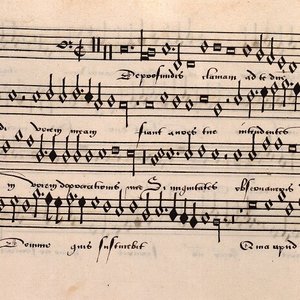 De profundis clamavi ad te dne
vocem meam fiant aures tue intendentes
in vocem deprecationis mee Si iniquitates observaveris
Domine quis sustinebit Quia apud